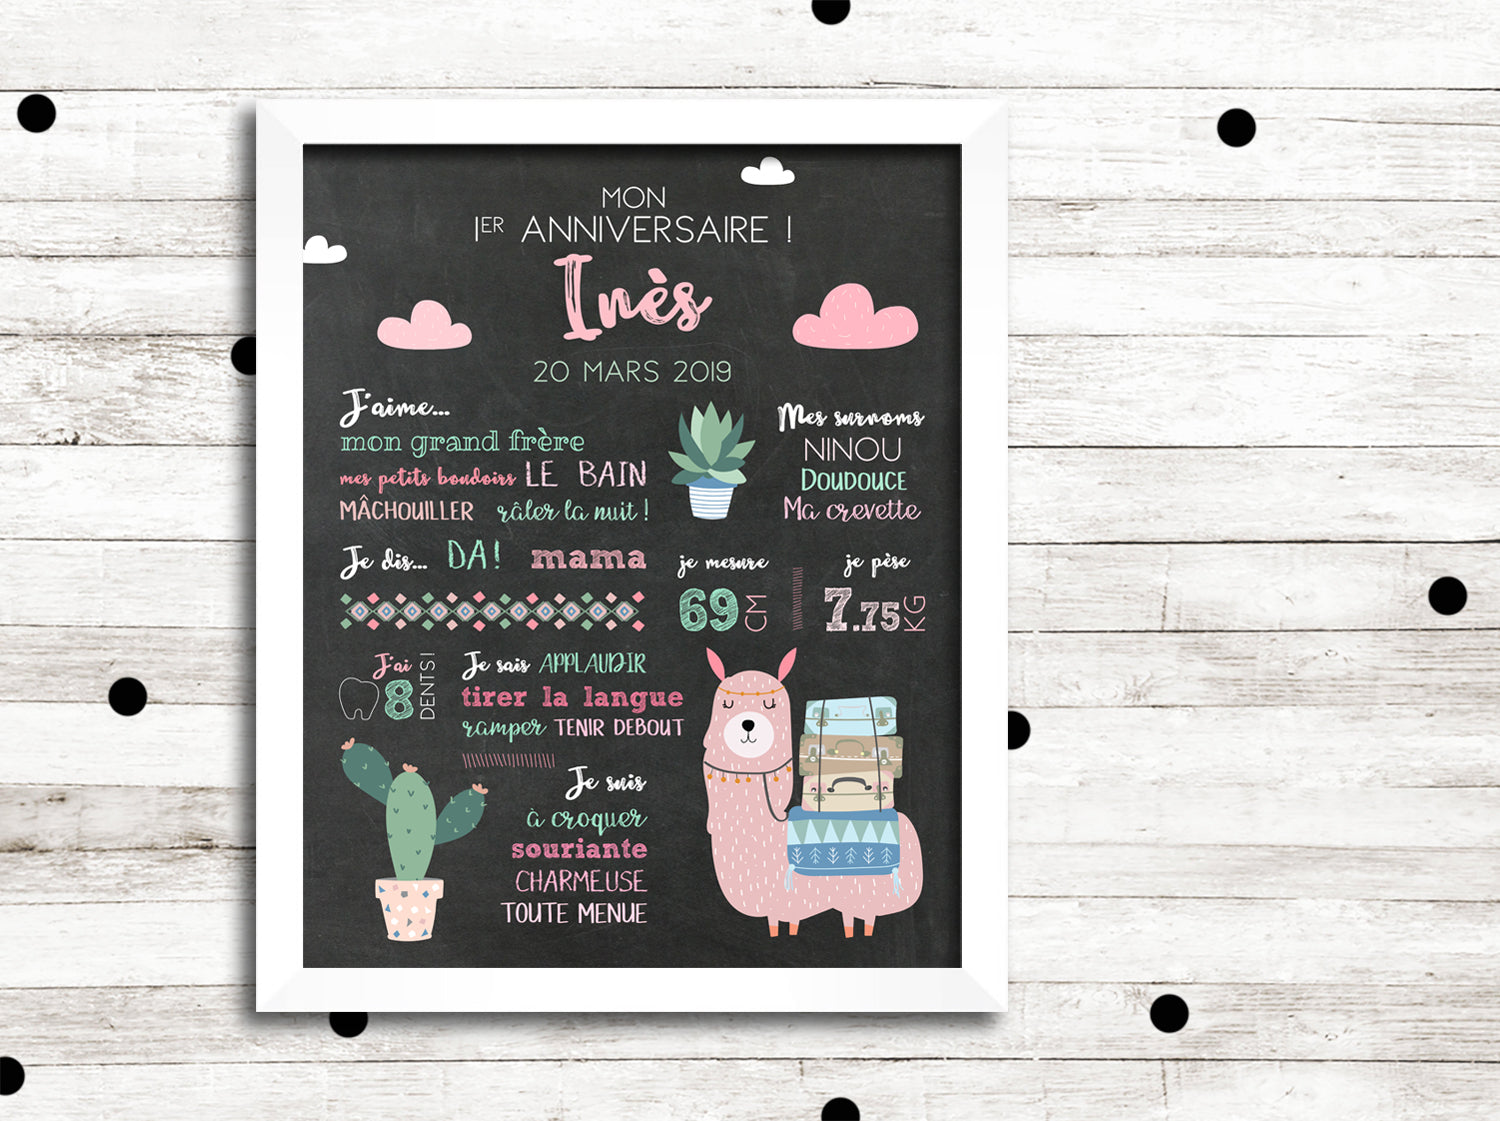 MON
1ER ANNIVERSAIRE !
Inès
20 MARS 2019
J'aime...
mon grand frère
mes petits boudoirs LE BAIN
MÂCHOUILLER râler la nuit !
Mes surnoms
NINOU
DOUDOUCE
Ma crevette
Je dis... DA! mama
je mesure
69 CM
je pèse
7.75 KG
J'ai
8 DENTS!
Je sais APPLAUDIR
tirer la langue
ramper TENIR DEBOUT
Je suis
à croquer
souriante
CHARMEUSE
TOUTE MENUE